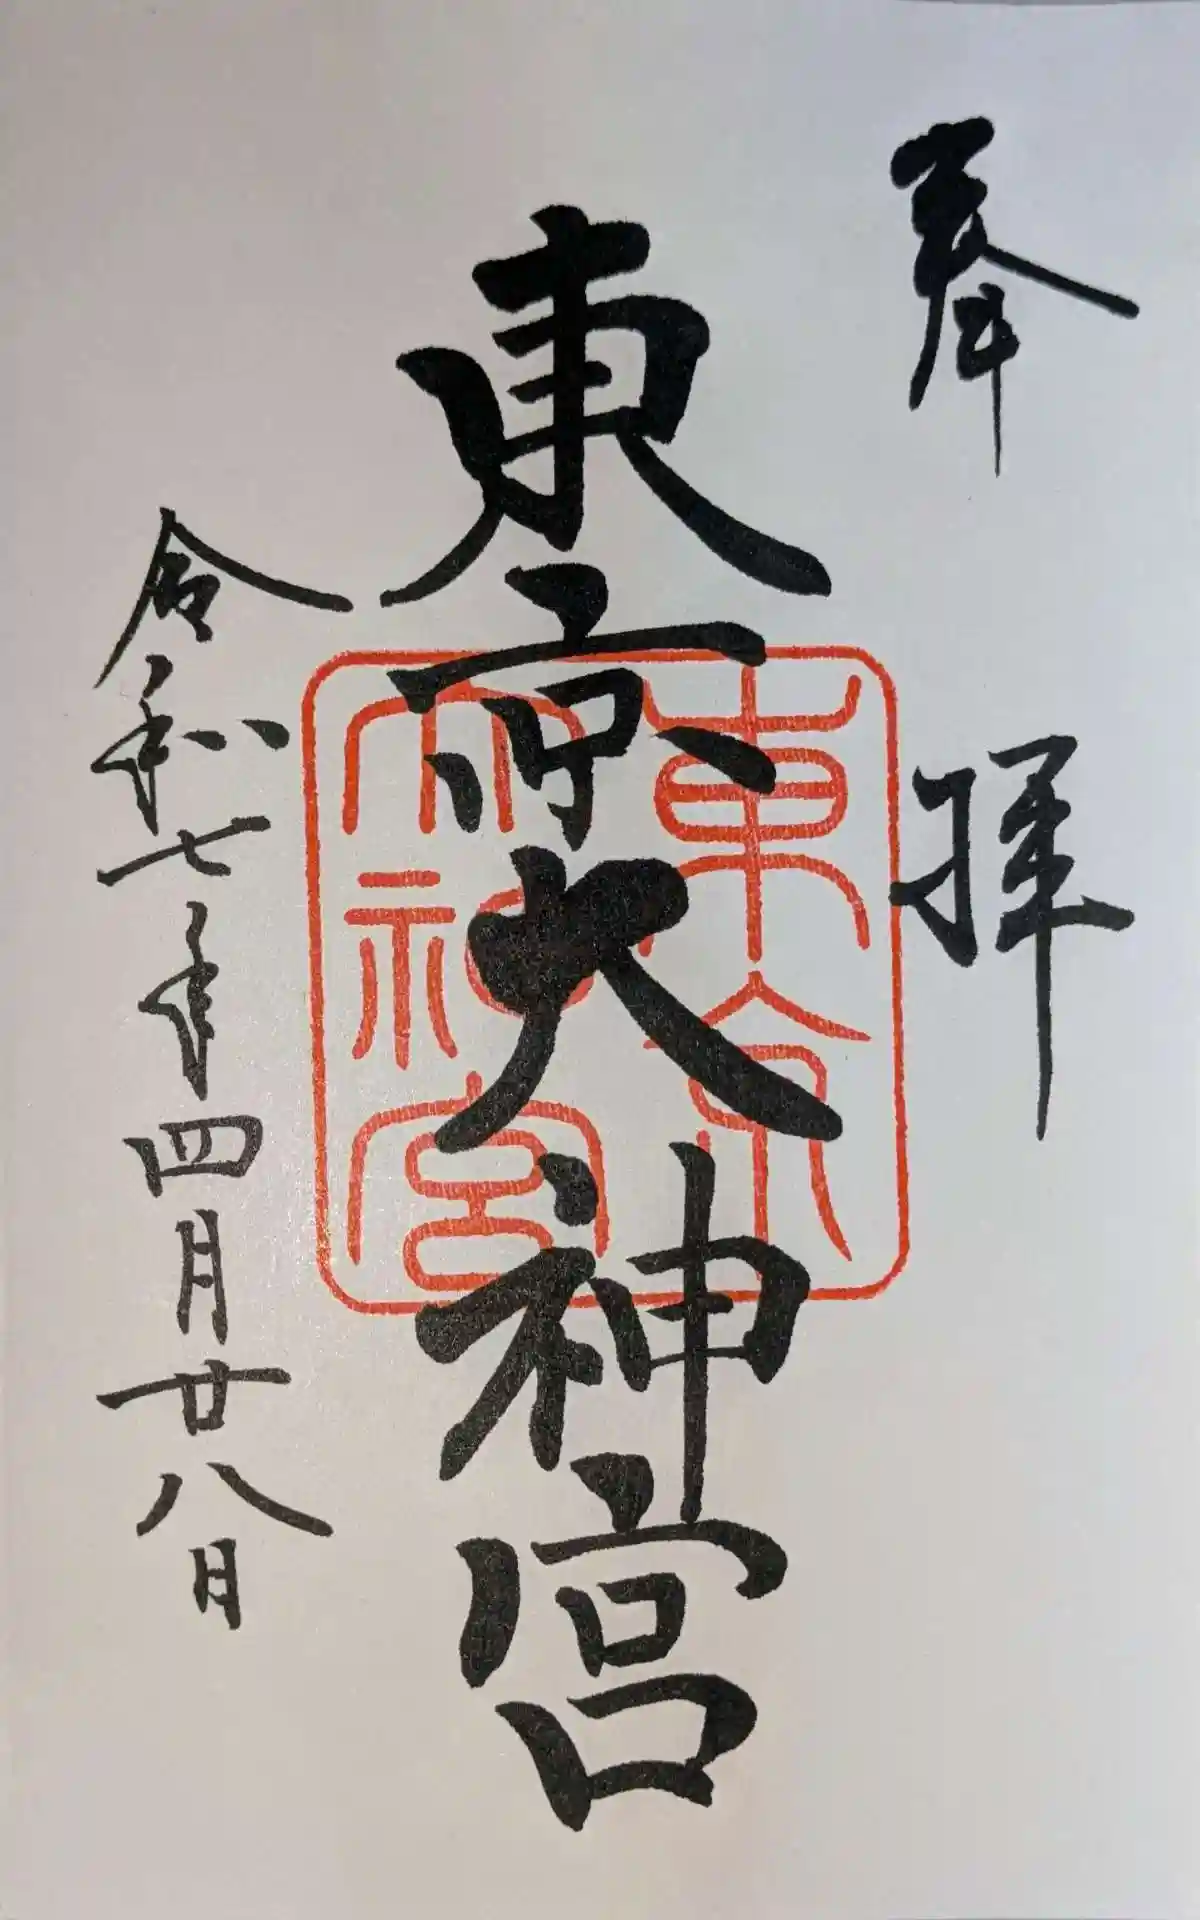 奉拝
東京大神宮
東京
大神宮
令和七年四月廿八日